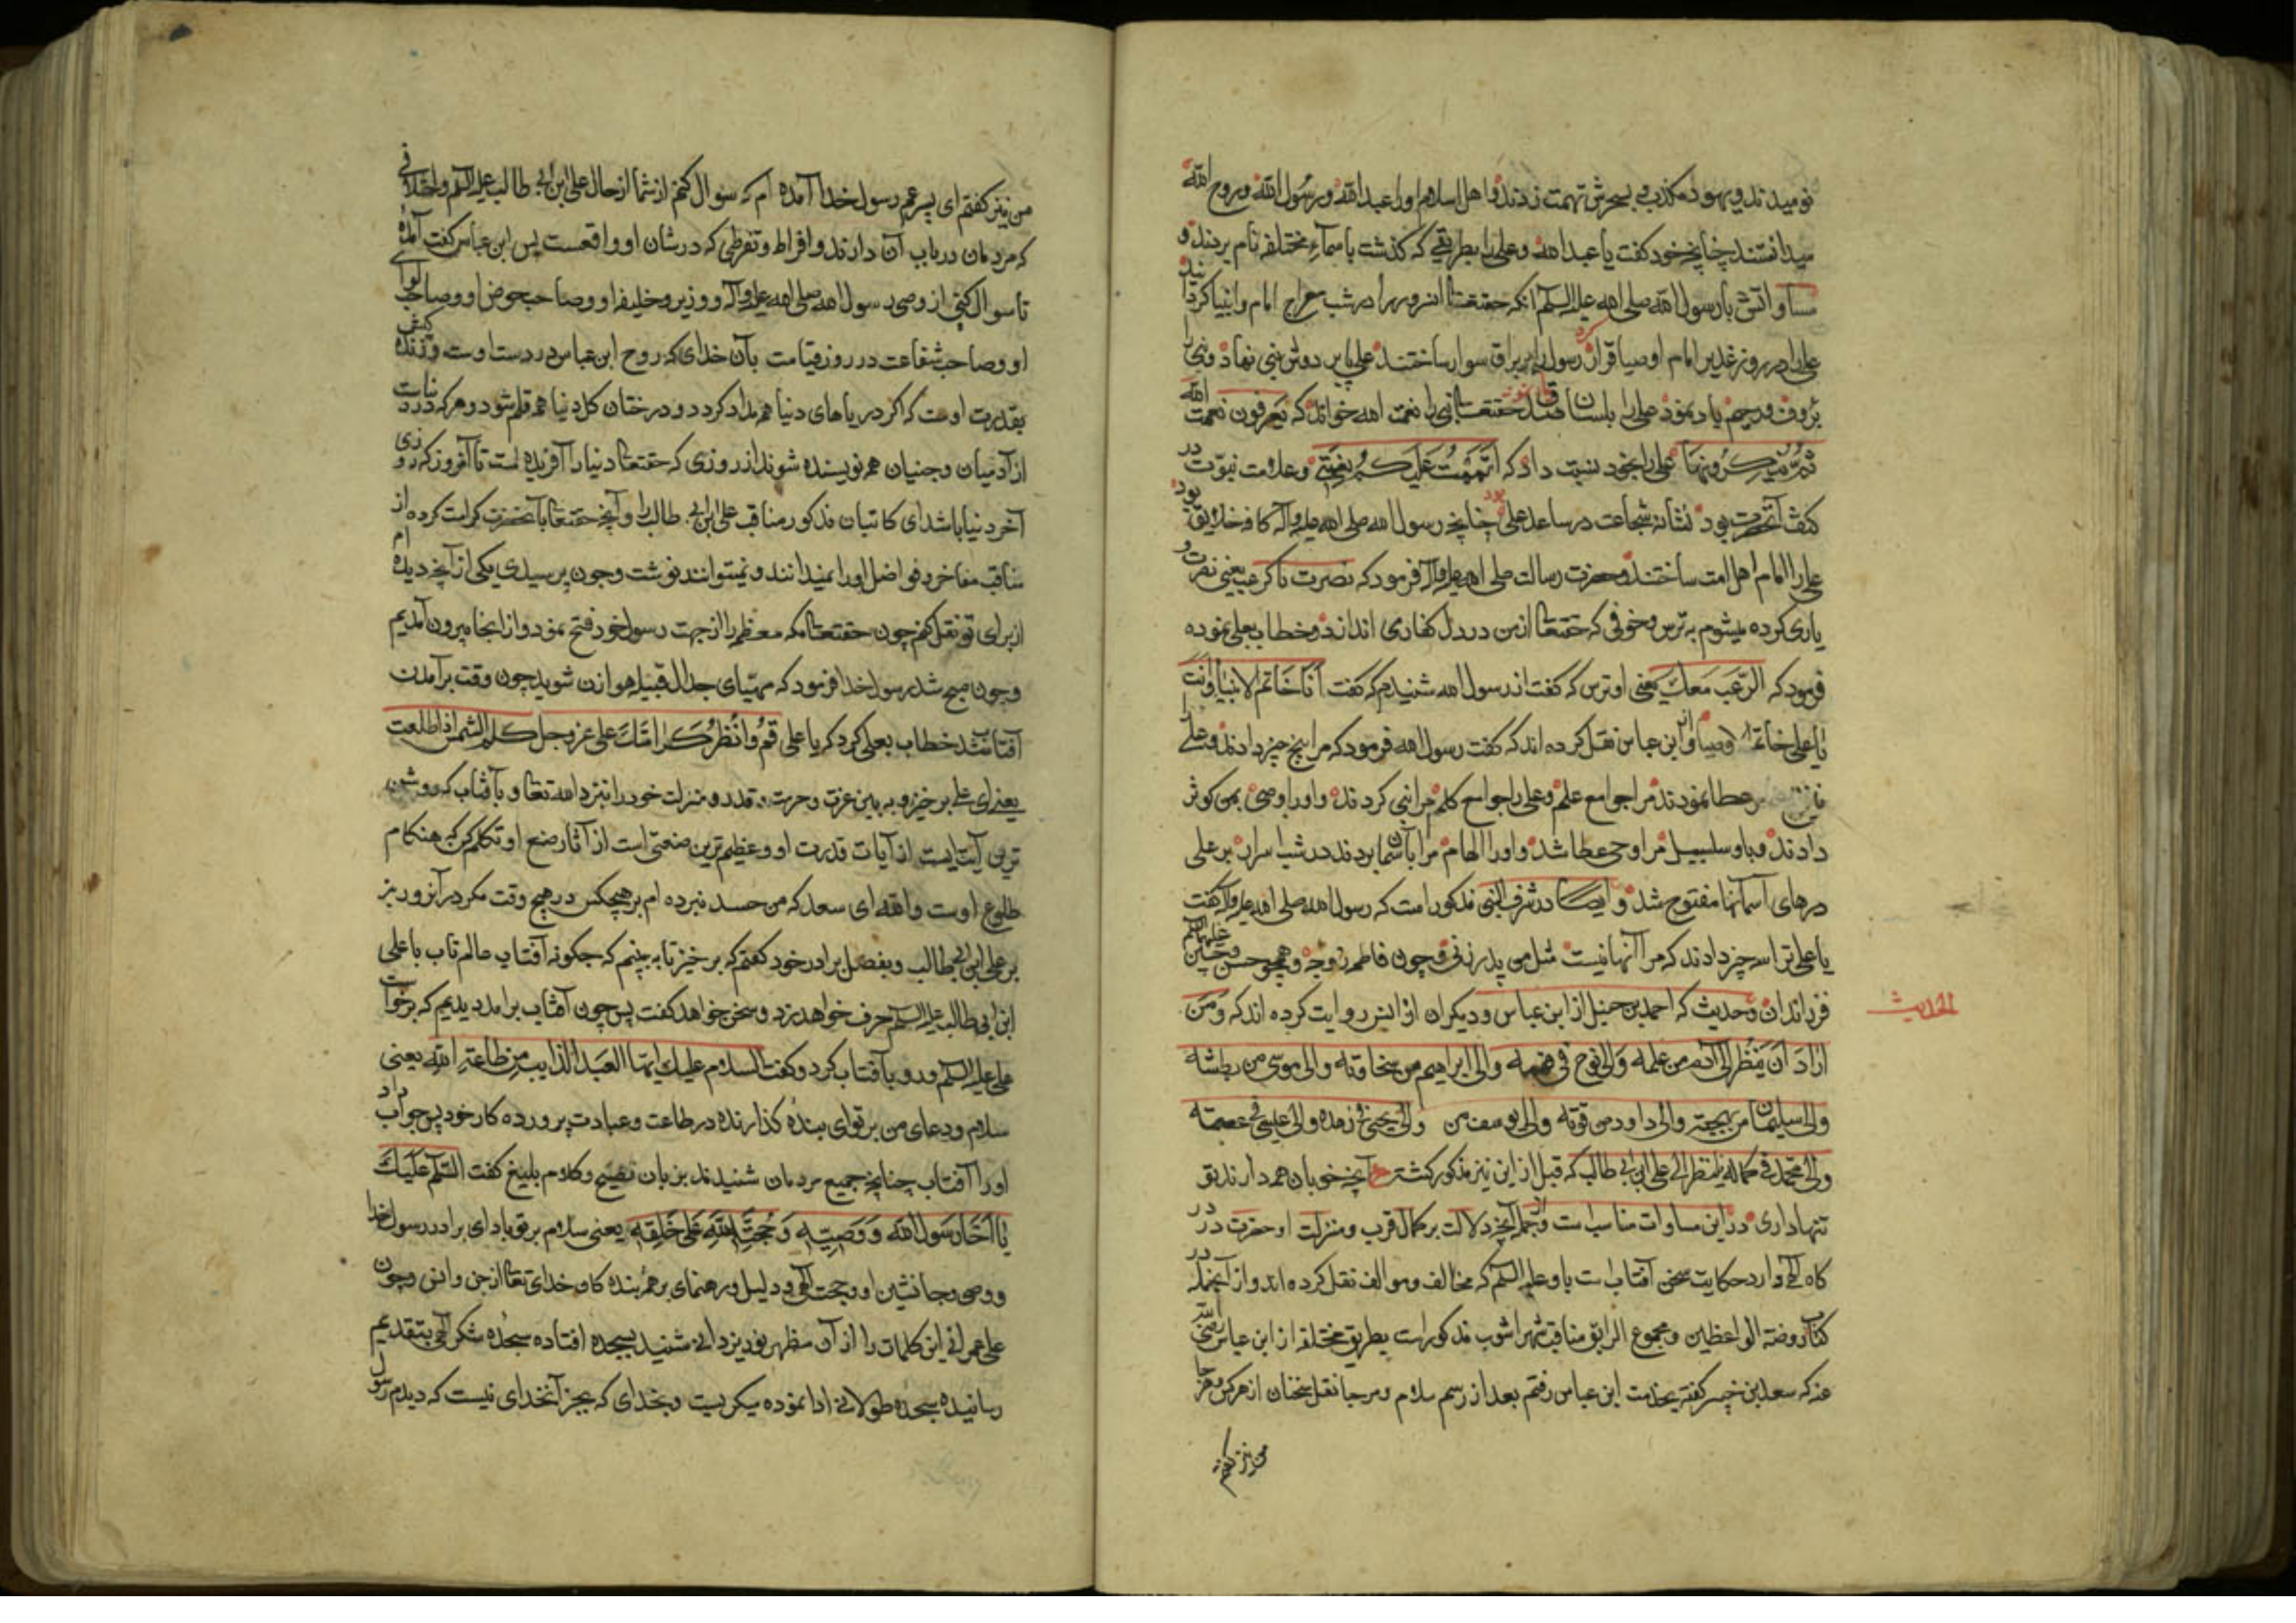 نومیدند و یهود مکذب بسحرش تهمت زدند و اهل اسلام اورا عبد الله و رسول الله و روح الله
میدانستند چنانچه خود گفت یا عبد الله و علی را بطریقی که گذشت باسماء مختلفه نام بردند و
مساواتش با رسول الله صلی الله علیه السلم آنکه حقتعالی انسرور را در شب معراج امام انبیا کردانید
علی را در روز غدیر امام اوصیا قرار کرد رسول را بر براق سوار ساختند علی پا بر دوش نبی نهاد و نبی را
برؤف و رحیم یاد نمود علی را بلسان حقتعالی نبی را نعمت الله خواند که یعرفون نعمت الله
ثم ینکرونها علی را بخود نسبت داد که اتممت علیکم نعمتی و علامت نبوت در
کتف آنحضرت بود نشانه شجاعت در ساعد علی بود چنانچه رسول الله صلی الله علیه وآله کافه خلایق بود
علی را امام اهل امت ساختند و حضرت رسالت صلی الله علیه وآله فرمود که نصرت بالرعب یعنی نصرت و
یاری کرده میشوم به ترس و خوفی که حقتعالی از من در دل کفار می اندازد و خطاب بعلی نموده
فرمود که الرعب معک یعنی او ترس که گفت از رسول الله شنیدم که گفت انا خاتم الانبیا و انت
یا علی خاتم الاوصیا و از ابن عباس نقل کرده اند که گفت رسول الله فرمود که مرا پنج چیز دادند و علی را
نیز پنج چیز عطا نمودند مرا جوامع علم و علی را جوامع کلم مرا نبی کردند و اورا وصی بمن کوثر
دادند و باو سلسبیل مرا وحی عطا شد و اورا الهام مرا بآسمان بردند در شب اسرا و بر علی
درهای آسمانها مفتوح شد و ایضا در شرف النبی مذکور است که رسول الله صلی الله علیه وآله گفت
یا علی ترا سه چیز دادند که مرا آنها نیست مثل من پدر زنی و چون فاطمه زوجه و همچو حسن و حسین علیهما السلم
فرزندان و حدیث که احمد بن حنبل از ابن عباس و دیگران از انس روایت کرده اند که و من
الحدیث
اراد ان ینظر الی آدم من علمه والی نوح فی فهمه والی ابراهیم من سخاوته والی موسی من بطشه
والی سلیمان من بهجته والی داود من قوته والی یوسف من والی یحیی فی زهده والی عیسی فی عصمته
والی محمد فی کماله فلینظر الی علی ابن ابی طالب که قبل از این نیز مذکور گشته آنچه خوبان همه دارند تو
تنها داری در این مساوات مناسب است و از جمله آنچه دلالت بر کمال قرب و منزلت او حضرت در
کاه الهی دارد حکایت سخن آفتاب است باو علیه السلم که مخالف و موالف نقل کرده اند و از آنجمله در
کتاب روضة الواعظین و مجموع الرایق مناقب شهر اشوب مذکور است بطریق مختلفه از ابن عباس رضی الله
عنه که سعد بن گفته بخدمت ابن عباس رفتم بعد از رسم سلام و مرحبا نقل سخنان از هر کس و هر جا
من نیز گفتم
من نیز گفتم ای پسر عم رسول خدا آمده ام که سوال کنم از شما از حال علی ابن ابی طالب علیه السلم و اختلافی
که مردمان در باب آن دارند و افراط و تفرطی که در شان او واقعست پس ابن عباس گفت آمدۀ
تا سوال کنی از وصی رسول الله صلی الله علیه وآله و وزیر و خلیفه او و صاحب حوض او و صاحب لوای
او و صاحب شفاعت در روز قیامت بآن خدای که روح ابن عباس در دست اوست و زنده
بقدرت اوست که اگر دریاهای دنیا همه مداد گردد و درختان کل دنیا همه قلم شود و هر که
از آدمیان و جنیان همه نویسنده شوند از روزی که حقتعالی دنیا را آفریده است تا آنروز که روزی
آخر دنیا باشد ای کاتبان مذکور مناقب علی ابن ابی طالب را و آنچه حقتعالی بآنحضرت کرامت کرده از
مناقب مفاخر و فواضل اورا نمیدانند و نمیتوانند نوشت و چون پرسیدی یکی از آنچه دیده ام
از برای تو نقل کنم چون حقتعالی مکه معظمه را از جهت رسول خود فتح نمود و از انجا بیرون آمدیم
و چون صبح شد رسول خدا فرمود که مهیای جدال قبیله هوازن شوید چون وقت برآمدن
آفتاب شد خطاب بعلی کرد که یا علی قم وانظر کرامتک علی عز وجل کلم الشمس اذا طلعت
یعنی ای علی برخیز و به بین عزت و حرمت و قدر و منزلت خود را نزد الله تعالی و بآفتاب که روشن
ترین آیت ایست از آیات قدرت او و عظیم ترین صنعتی است از آثار صنع او تکلم کن که هنگام
طلوع اوست والله ای سعد که من حسد نبرده ام بر هیچکس در هیچ وقت مگر در آنروز بر
بر علی ابن ابی طالب و بفضل برادر خود گفتم که برخیز تا به بینیم که چگونه آفتاب عالم تاب با علی
ابن ابی طالب علیه السلم حرف خواهد زد و سخن خواهد گفت پس چون آفتاب برامد دیدیم که برخواست
علی علیه السلم و رو بآفتاب کرد و گفت السلام علیک ایها العبد الذایب من طاعة الله یعنی
سلام و دعای من بر تو ای بنده گذارنده در طاعت و عبادت پرورده کار خود پس جواب داد
اورا آفتاب چنانچه جمیع مردمان شنیدند بزبان فصیح و کلام بلیغ گفت السلم علیک
یا اخا رسول الله و وصیه و حجة الله علی خلقه یعنی سلام بر تو باد ای برادر رسول خدا
و وصی و جانشین او و حجت الهی و دلیل و رهنمای بر همه بنده کان خدای تعالی از جن و انس و چون
علی عمرانی این کلمات را از آن مظهر نور یزدانی شنید بسجده افتاده سجدۀ شکر الهی بتقدیم
رسانیده سجدۀ طولانی ادا نموده میگریست و بخدای که بجز آنخدای نیست که دیدم رسول